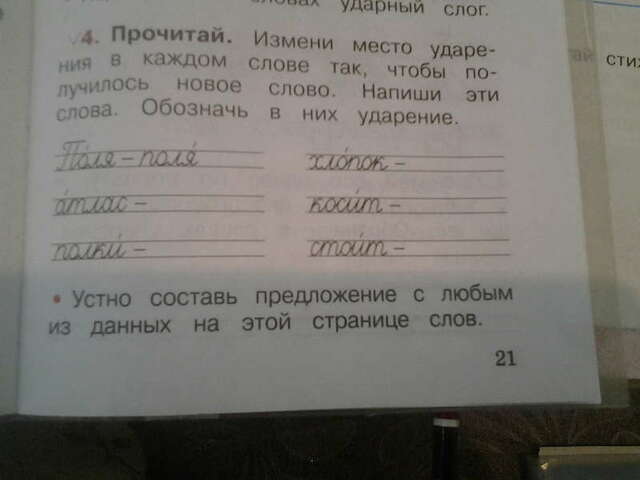 словах ударный слог.
4. Прочитай. Измени место ударе-
ния в каждом слове так, чтобы по-
лучилось новое слово. Напиши эти
слова. Обозначь в них ударение.
По́ля – поля́
хло́пок –
а́тлас –
коси́т –
полки́ –
стои́т –
• Устно составь предложение с любым
из данных на этой странице слов.
21
сти